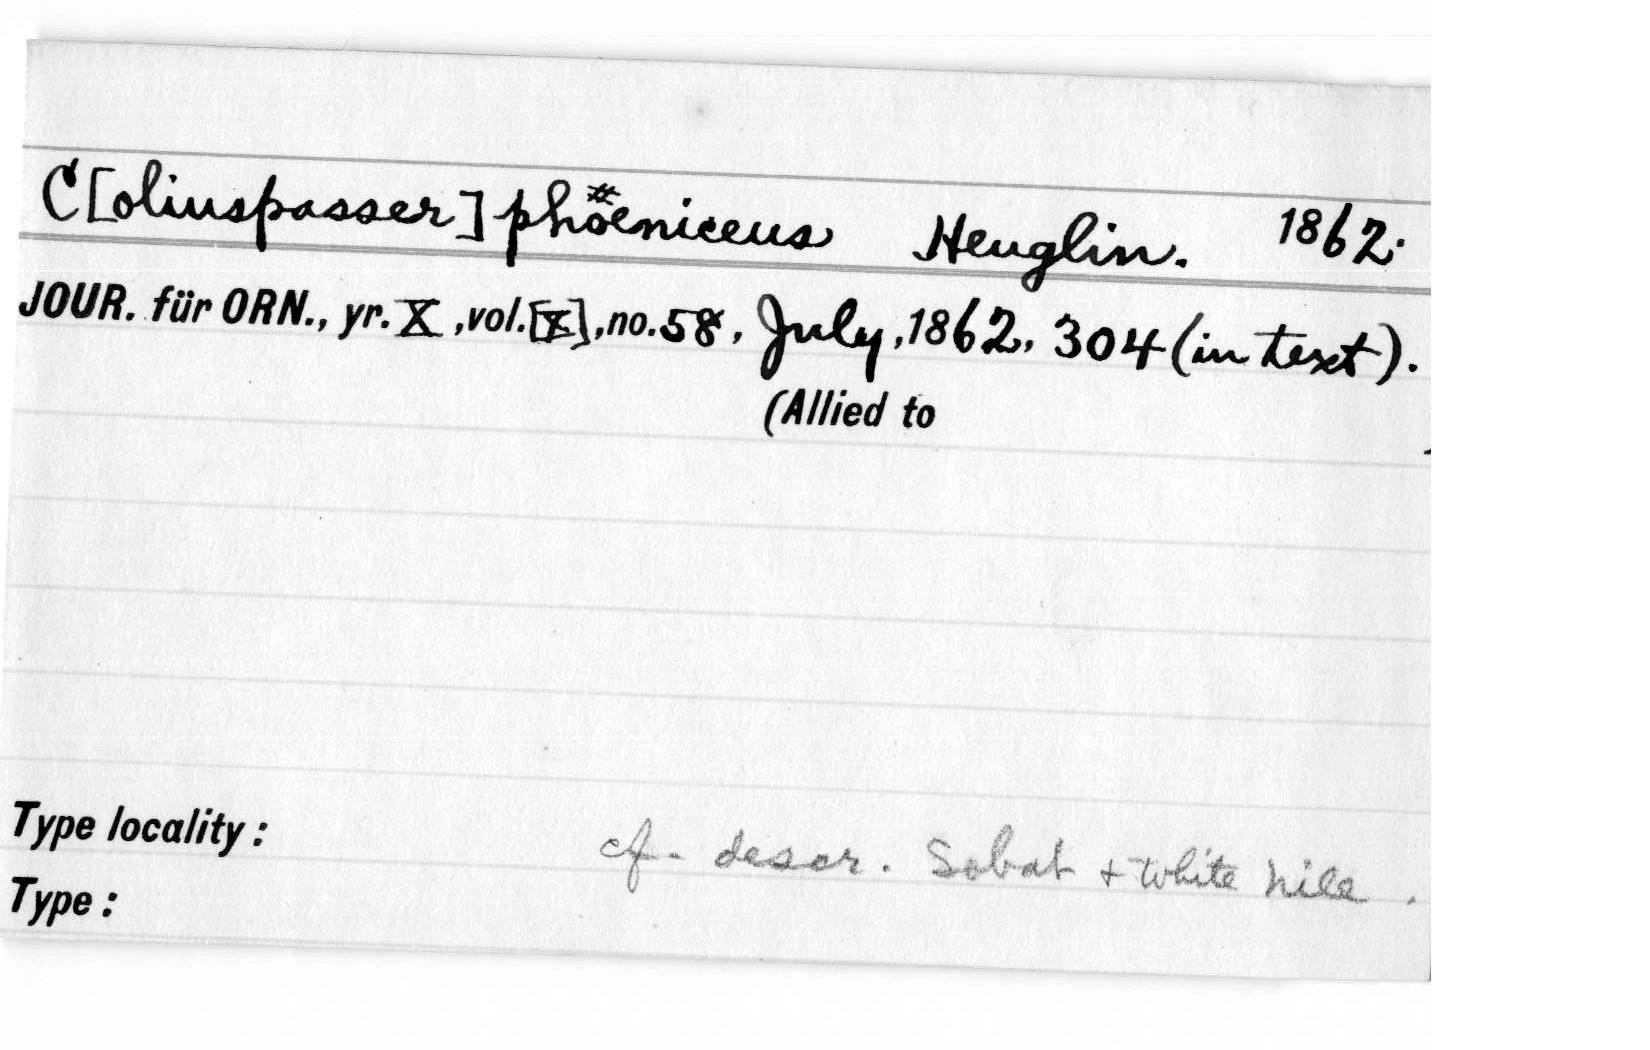 C[oliuspasser] phöeniceus Heuglin. 1862.
JOUR. für ORN., yr. X, vol. [X], no. 58, July, 1862, 304 (in text).
(Allied to )
Type locality: cf. descr. Sobat + White Nile.
Type: